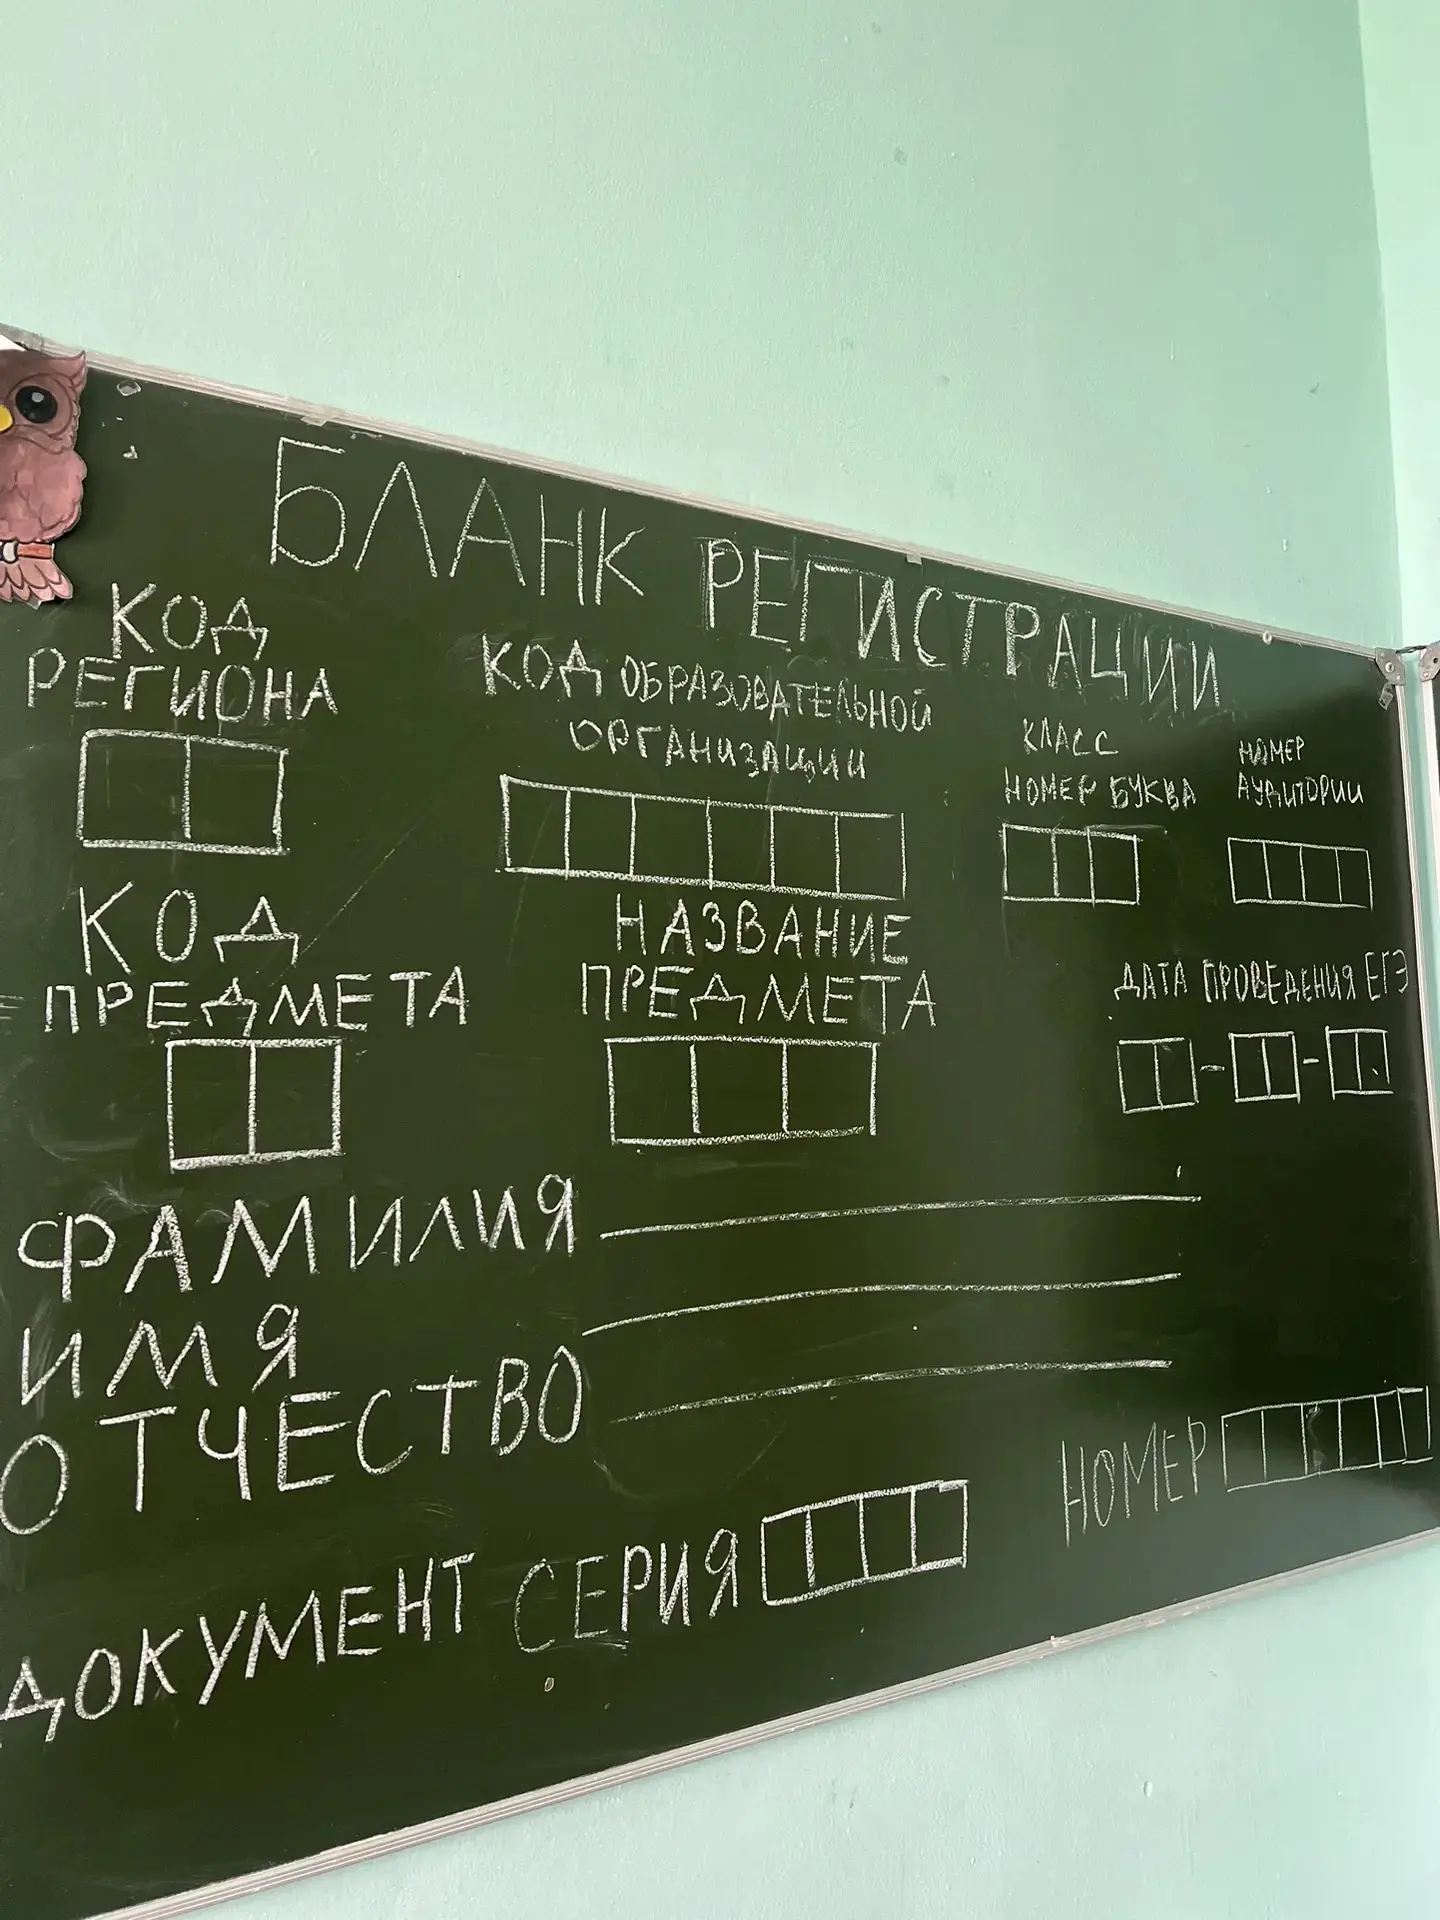 БЛАНК РЕГИСТРАЦИИ
КОД
РЕГИОНА
КОД ОБРАЗОВАТЕЛЬНОЙ
ОРГАНИЗАЦИИ
КЛАСС
НОМЕР БУКВА
НОМЕР
АУДИТОРИИ
КОД
ПРЕДМЕТА
НАЗВАНИЕ
ПРЕДМЕТА
ДАТА ПРОВЕДЕНИЯ ЕГЭ
- -
ФАМИЛИЯ
ИМЯ
ОТЧЕСТВО
ДОКУМЕНТ СЕРИЯ
НОМЕР